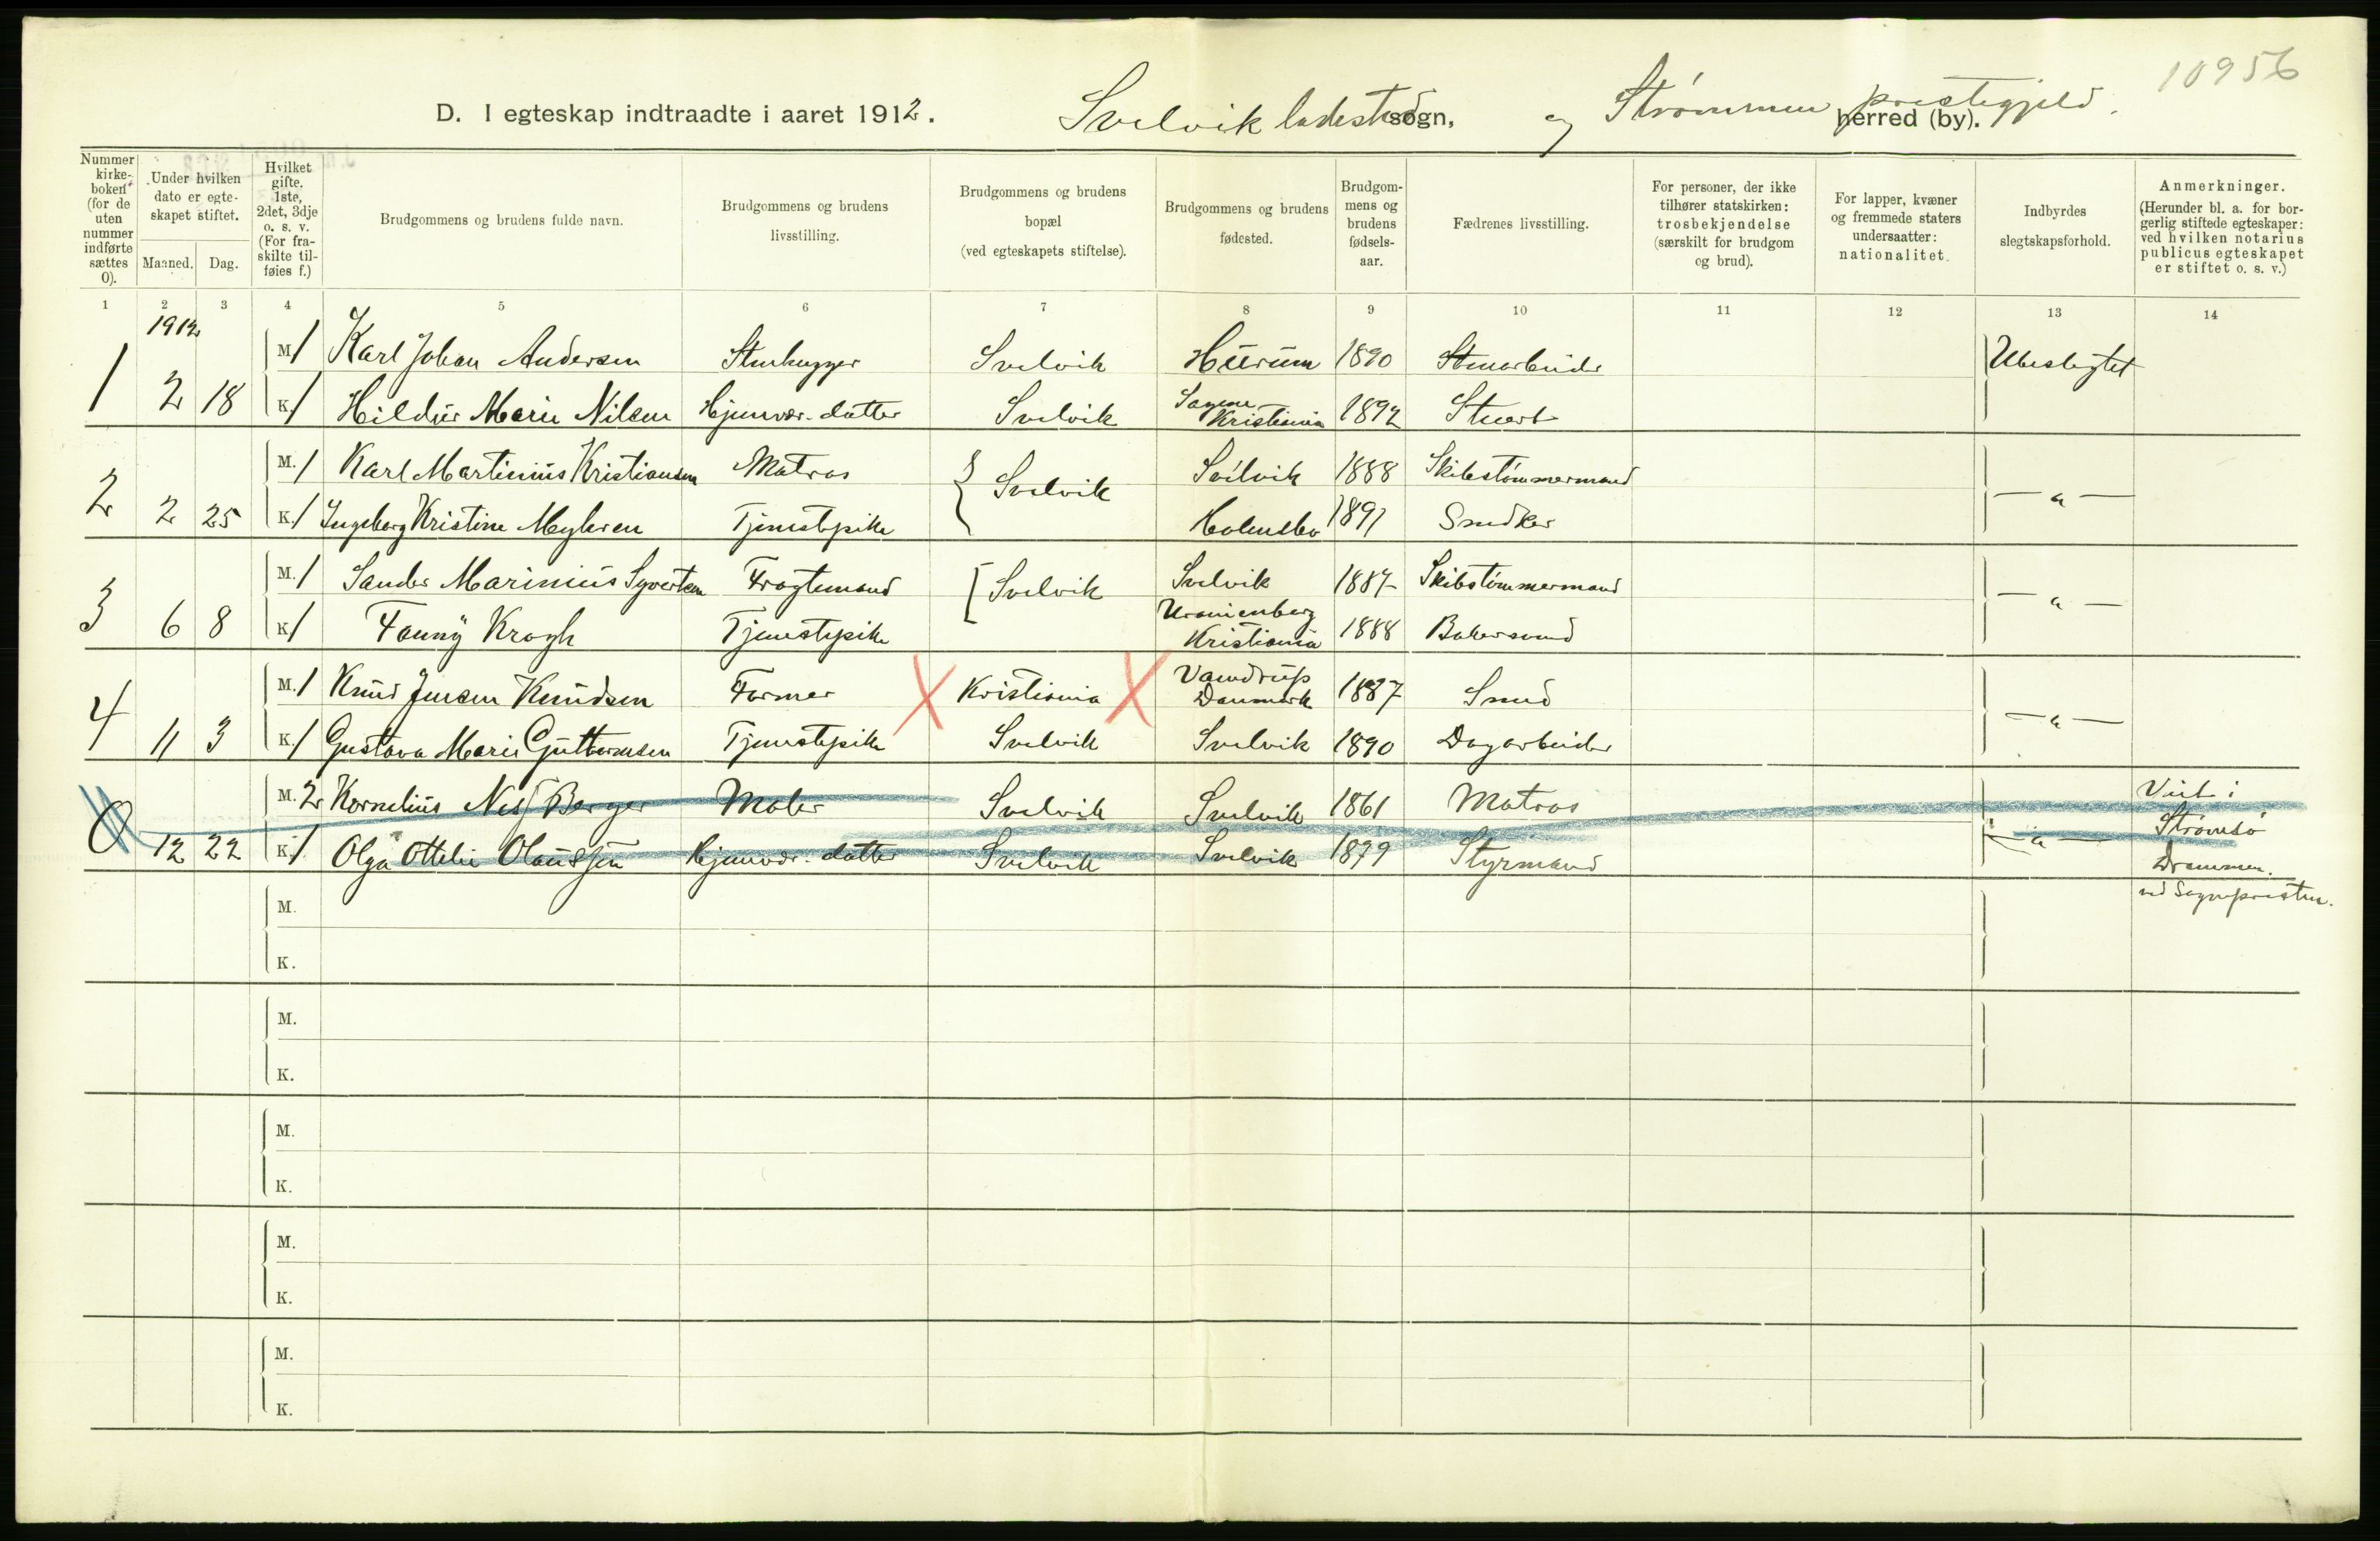 10956
D. I egteskap indtraadte i aaret 1912. Svelvik ladested sogn, og Strømmen prestegjeld. herred (by).
Nummer kirkeboken (for de uten nummer indførte sættes 0).
Under hvilken dato er egteskapet stiftet.
Maaned. Dag.
Hvilket gifte. 1ste, 2det, 3dje o. s. v. (For fraskilte tilføies f.)
Brudgommens og brudens fulde navn.
Brudgommens og brudens livsstilling.
Brudgommens og brudens bopæl (ved egteskapets stiftelse).
Brudgommens og brudens fødested.
Brudgommens og brudens fødselsaar.
Fædrenes livsstilling.
For personer, der ikke tilhører statskirken: trosbekjendelse (særskilt for brudgom og brud).
For lapper, kvæner og fremmede staters undersaatter: nationalitet.
Indbyrdes slegtskapsforhold.
Anmerkninger. (Herunder bl. a. for borgerlig stiftede egteskaper: ved hvilken notarius publicus egteskapet er stiftet o. s. v.)
1 2 3 4 5 6 7 8 9 10 11 12 13 14
1912
M. 1 Karl Johan Andersen Stenhugger Svelvik Hurum 1890 Stenarbeider Ubeslegtet
1 2 18 K. 1 Hildur Marie Nilsen Hjemvær. datter Svelvik Sagene Kristiania 1892 Stuert
M. 1 Karl Martinius Kristiansen Matros Svelvik Svelvik 1888 Skibstømmermand
2 2 25 K. 1 Ingeborg Kristine Myhren Tjenestepike Holmsbo 1891 Snedker — " —
M. 1 Sander Marinius Syvertsen Fragtemand Svelvik Svelvik 1887 Skibstømmermand
3 6 8 K. 1 Fanny Krogh Tjenestepike Uranienborg Kristiania 1888 Bakersvend — " —
M. 1 Knud Jensen Knudsen Farmer Kristiania Vamdrup Danmark 1887 Smed
4 11 3 K. 1 Gustava Marie Guttormsen Tjenestepike Svelvik Svelvik 1890 Dagarbeider — " —
M. 2 Kornelius Berger Maler Svelvik Svelvik 1861 Matros Viet i
0 12 22 K. 1 Olga Ottilie Olaussen Hjemvær. datter Svelvik Svelvik 1879 Styrmand — " — Strømsø
Drammen.
ved Sognepresten.
M.
K.
M.
K.
M.
K.
M.
K.
M.
K.